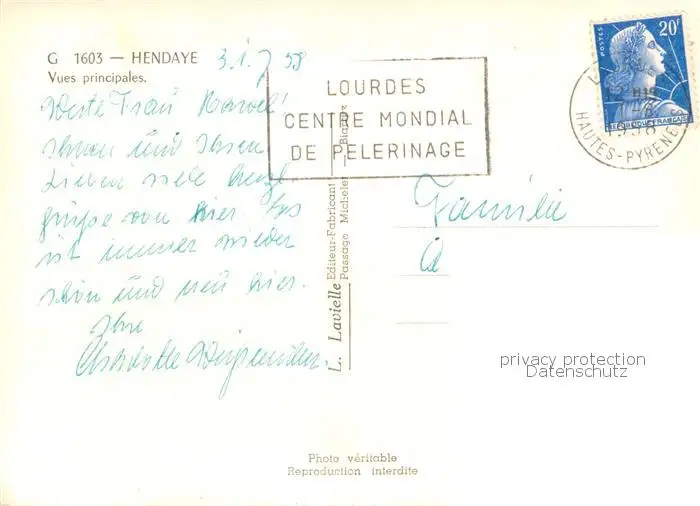 G 1603 — HENDAYE
Vues principales.
31.7 58
Werte Frau
Ihnen und Ihren
Lieben viele herzl.
grüße von hier. Es
ist immer wieder
schön und neu hier.
Ihre
Charlotte
LOURDES
CENTRE MONDIAL
DE PELERINAGE
POSTES
20F
REPUBLIQUE FRANÇAISE
1958
HAUTES-PYRENEES
L. Lavielle Editeur-Fabricant
Passage Michelet — Biarritz
Familie
privacy protection
Datenschutz
Photo véritable
Reproduction interdite